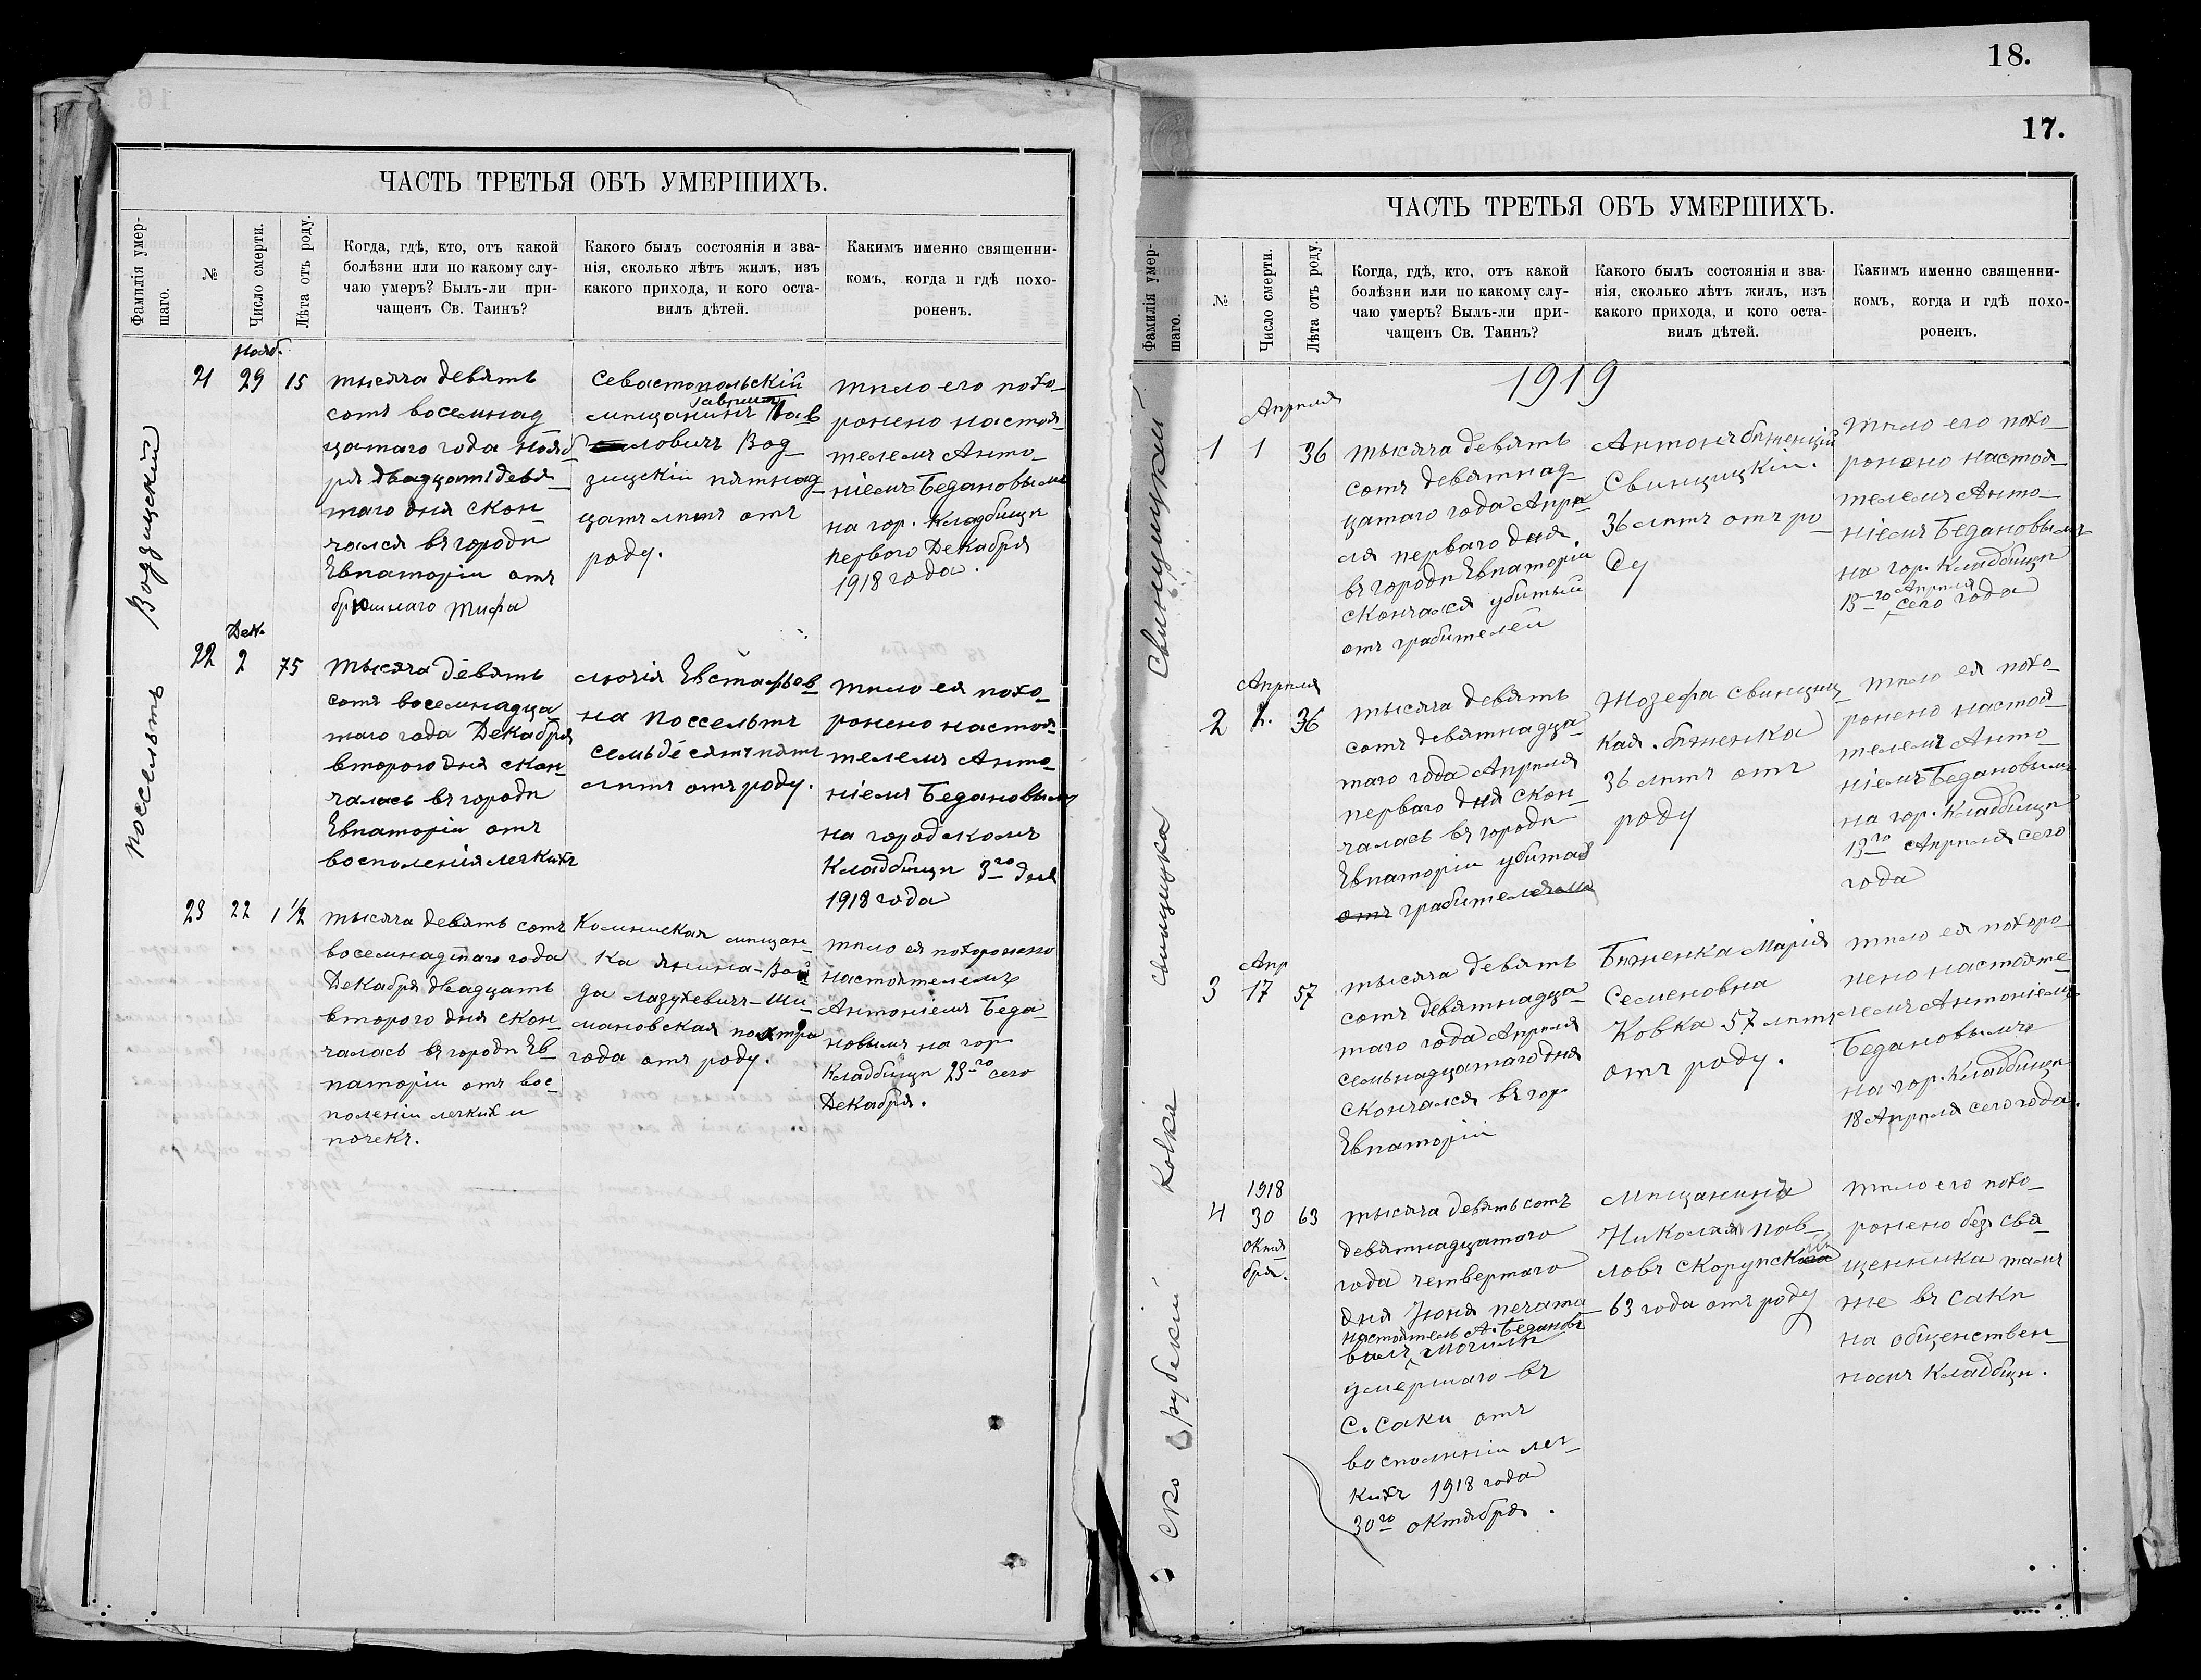 ЧАСТЬ ТРЕТЬЯ ОБЪ УМЕРШИХЪ.
Фамилія умер-
шаго.
№
Число смерти.
Лѣта отъ роду.
Когда, гдѣ, кто, отъ какой
болѣзни или по какому слу-
чаю умеръ? Былъ-ли при-
чащенъ Св. Таинъ?
Какого былъ состоянія и зва-
нія, сколько лѣтъ жилъ, изъ
какого прихода, и кого оста-
вилъ дѣтей.
Какимъ именно священни-
комъ, когда и гдѣ похо-
роненъ.
Водзицскій
Нояб.
21 29 15
тысяча девять
сотъ восемнад
цатаго года Нояб
ря двадцати девя
таго дня скон-
чался въ городѣ
Евпаторіи отъ
брюшнаго тифа
Севастопольскій
мѣщанинъ
ловичъ Вод-
зицскій пятнад-
цать лѣтъ отъ
роду.
тѣло его похо-
ронено настоя-
телемъ Анто-
ніемъ Бедановымъ
на гор. Кладбищѣ
первого Декабря
1918 года.
Поссельтъ
Дек.
22 2 75
Тысяча девять
сотъ восемнадца
таго года Декабря
второго дня скон-
чалась въ городѣ
Евпаторіи отъ
восполенія легкихъ
Люгія Евстафьев
на Поссельтъ
семьдесятъ пять
лѣтъ отъ роду.
тѣло ея похо-
ронено настоя-
телемъ Анто-
ніемъ Бедановымъ
на городскомъ
Кладбищѣ 3го дня
1918 года
23 22 1 1/2
тысяча девять сотъ
восемнадцтаго года
Декабря двадцать
второго дня скон-
чалась въ городѣ Ев-
паторіи отъ вос-
поленіи легких и
почекъ.
мѣщан-
ка Янина-Ван
да Лазукевичъ-Ши-
мановская полтра
года отъ роду.
тѣло ея похоронено
настоятелемъ
Антоніемъ Беда-
новымъ на гор
Кладбищѣ 23-го сего
Декабря.
18.
17.
ЧАСТЬ ТРЕТЬЯ ОБЪ УМЕРШИХЪ.
Фамилія умер-
шаго.
№
Число смерти.
Лѣта отъ роду.
Когда, гдѣ, кто, отъ какой
болѣзни или по какому слу-
чаю умеръ? Былъ-ли при-
чащенъ Св. Таинъ?
Какого былъ состоянія и зва-
нія, сколько лѣтъ жилъ, изъ
какого прихода, и кого оста-
вилъ дѣтей.
Какимъ именно священни-
комъ, когда и гдѣ похо-
роненъ.
1919
Свинцицкій
Апрѣля
1 1 36
тысяча девять
сотъ девятнад-
цатаго года Апрѣ
ля перваго дня.
въ городѣ Евпаторіи
скончался убитый
отъ грабителей
Антонъ бѣженецъ
Свинцицкій.
36 лѣтъ отъ ро-
ду
тѣло его похо-
ронено настоя-
телемъ Анто-
ніемъ Бедановымъ
на гор. Кладбищѣ
Апрѣля
13-го сего года
Свинцицка
Апрѣля
2 1. 36
тысяча девять
сотъ девятнадца-
таго года Апрѣля
перваго дня скон-
чалась въ городѣ
Евпаторіи убитая
отъ грабителями
Жозефа Свинциц-
кая. бѣженка
36 лѣтъ отъ
роду
тѣло ея похо-
ронено настоя-
телемъ Анто-
ніемъ Бедановымъ
на гор. Кладбищѣ
13го Апрѣля сего
года
Ковка
Апр
3 17 57
тысяча девять
сотъ девятнадца-
таго года Апрѣля
семьнадцатаго дня
скончался въ гор
Евпаторіи
Бѣженка Марія
Семеновна
Ковка 57 лѣтъ
отъ роду.
тѣло ея похоро-
нено настояте-
лемъ Антоніемъ
Бедановымъ
на гор. Кладбищѣ
18 Апрѣля сего года.
1918
4 30 63
октя
бря.
тысяча девять сотъ
девятнадцатаго
года четвертаго
дня Іюня печата-
настоятель А. Бедановъ
валъ могилѣ
умершаго въ
с. Саки отъ
восполѣніи лег-
кихъ 1918 года
30го октября.
Мѣщанинъ
Николая Пав-
ловъ
63 года отъ роду
тѣло его похо-
ронено безъ свя-
щенника тамъ
же въ Саки
на общенствен-
номъ Кладбищѣ.